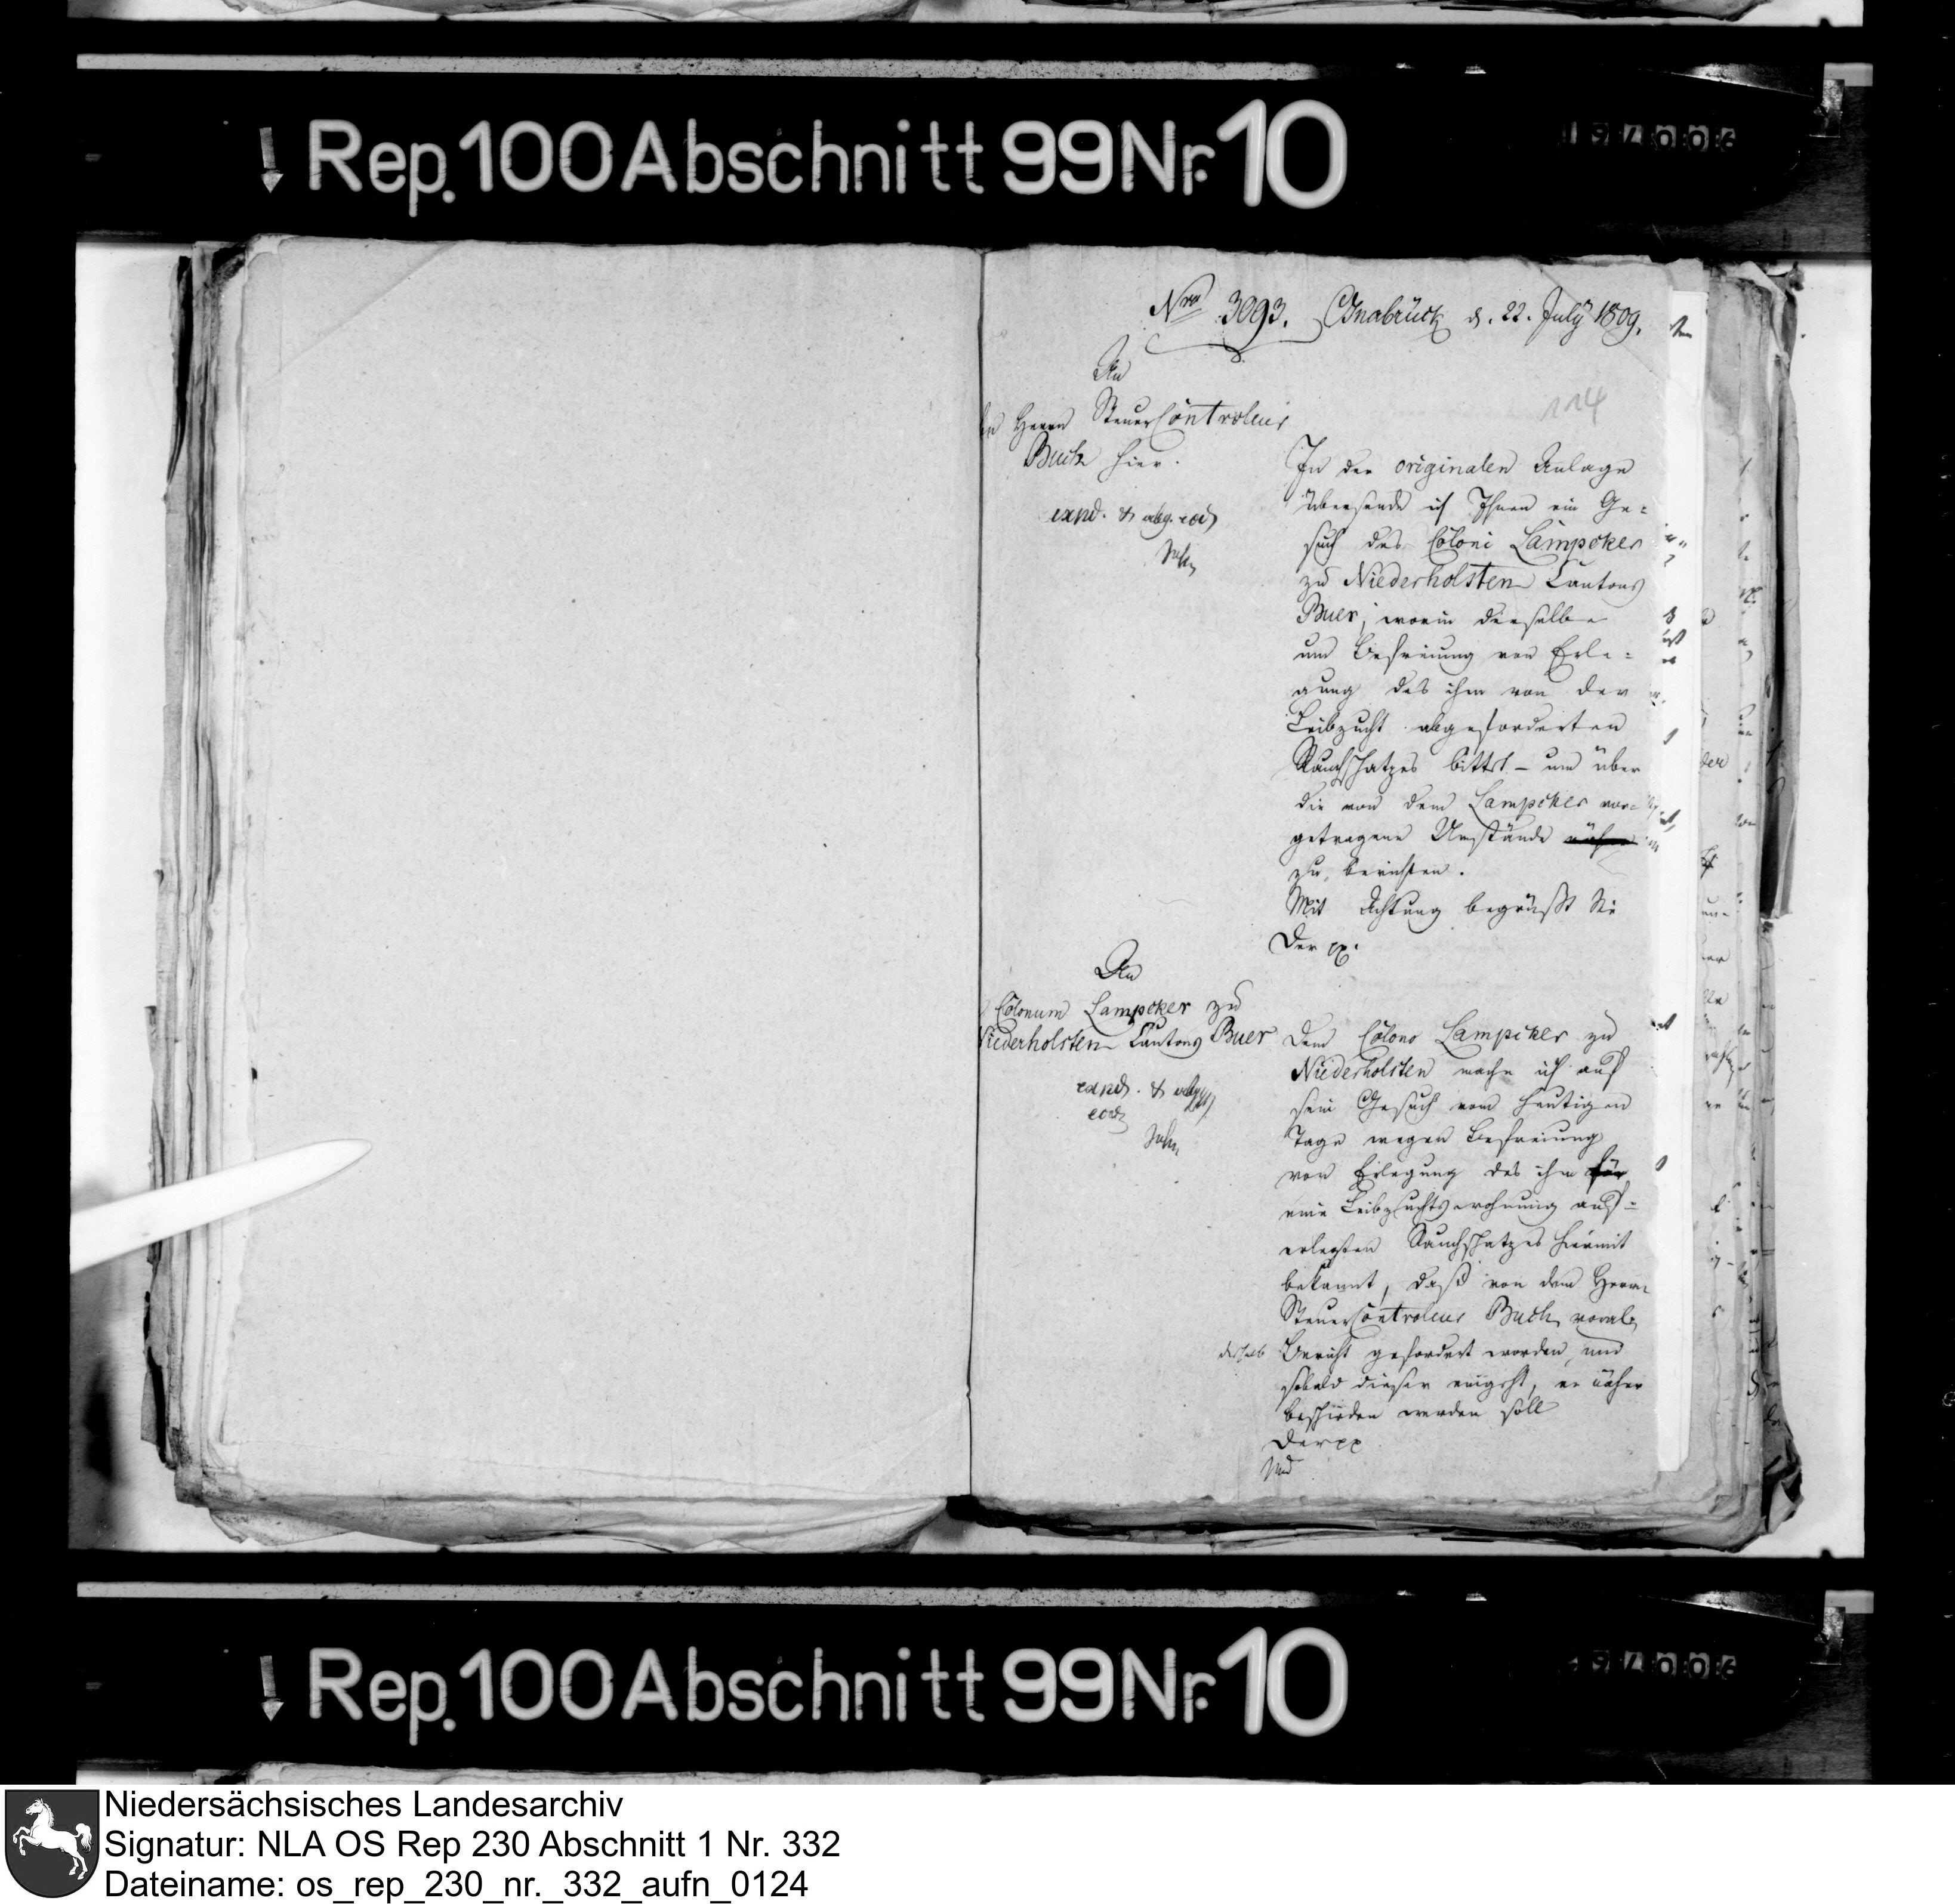 Rep. 100 Abschnitt 99 Nr. 10
Nro 3093. Osnabrück d. 22. July 1809.
114
An
den Herrn Steuer Controleur
Buck hier.
expd. & abg. eod
In der originalen Anlage
übersende ich Ihnen ein Ge=
such des Coloni Lampcker
zu Niederholsten Cantons
Buer, worin derselbe
um Befreiung von Erle=
gung des ihm von der
Leibzucht abgeforderten
Rauchschatzes bittet – um über
die von dem Lampcker vor=
getragene Umstände näher
zu berichten.
Mit Achtung begrüßt Sie
Der pp.
An
Colonum Lampcker zu
Niederholsten Cantons Buer
expd. & abg
eod
Dem Colono Lampcker zu
Niederholsten mache ich auf
sein Gesuch vom heutigen
Tage wegen Befreiung
von Erlegung des ihm für
eine Leibzuchtswohnung auf=
erlegten Rauchschatzes hiermit
bekannt, daß von dem Herrn
Steuer Controleur Buck
deshalb Bericht gefordert worden, und
sobald dieser eingeht, er näher
beschieden werden soll
Der pp
Rep. 100 Abschnitt 99 Nr. 10
Niedersächsisches Landesarchiv
Signatur: NLA OS Rep 230 Abschnitt 1 Nr. 332
Dateiname: os_rep_230_nr._332_aufn_0124